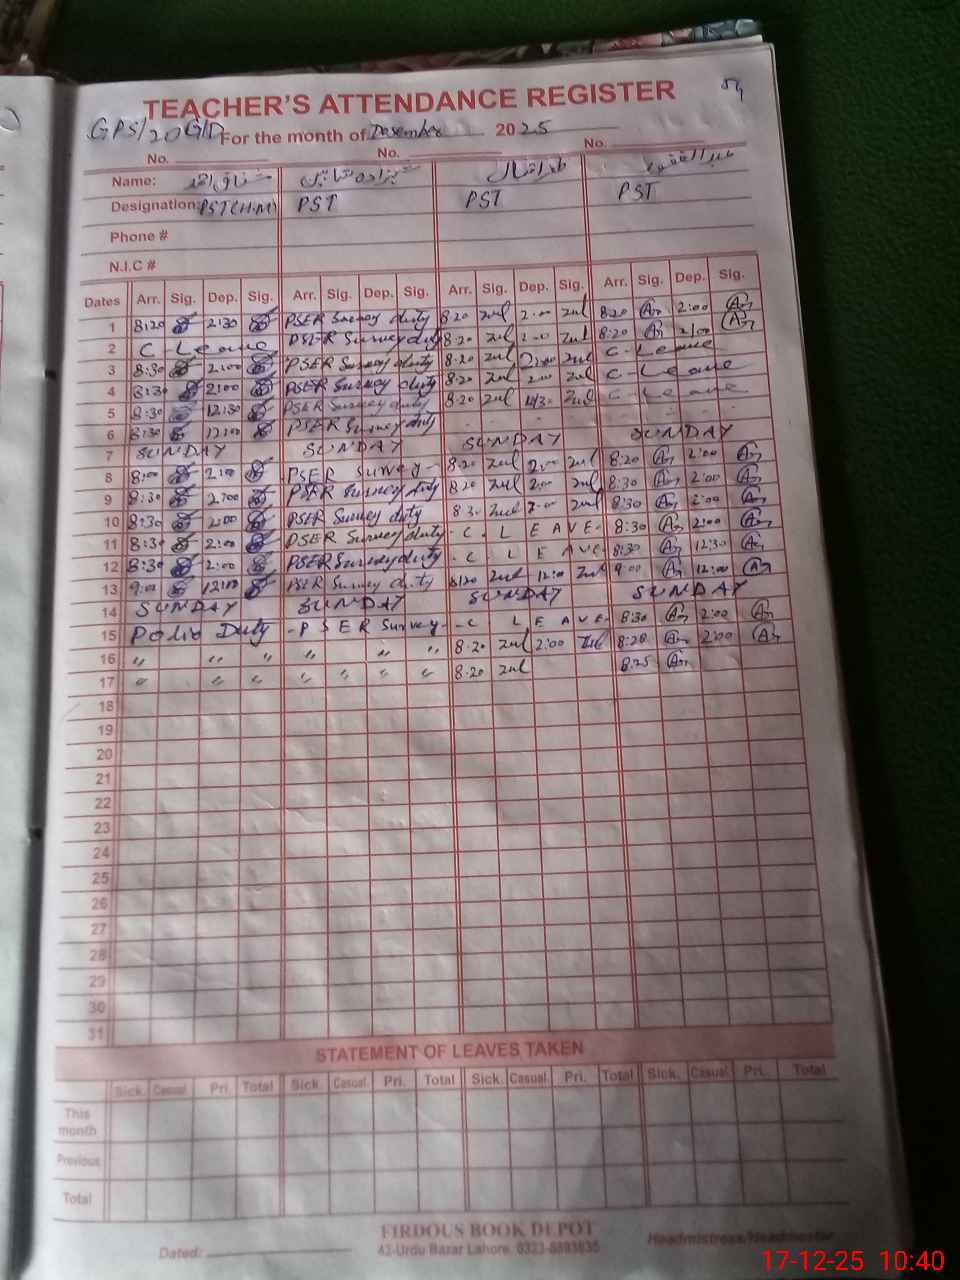 54
TEACHER'S ATTENDANCE REGISTER
GPS/20G/D For the month of Desember 2025
No. No. No.
Name: مشتاق احمد شہزادہ شاہین ظفر اقبال عبدالغفور
Designation: PST(H.M) PST PST PST
Phone #
N.I.C #
Dates Arr. Sig. Dep. Sig. Arr. Sig. Dep. Sig. Arr. Sig. Dep. Sig. Arr. Sig. Dep. Sig.
1 8:20 2:30 PSER Survey duty 8:20 2:00 8:20 2:00
2 C - Leave PSER Survey duty 8:20 2:00 8:20 2:00
3 8:30 2:00 PSER Survey duty 8:20 2:00 C - Leave
4 8:30 2:00 PSER Survey duty 8:20 2:00 C - Leave
5 8:30 12:30 PSER Survey duty 8:20 C - Leave
6 8:30 12:00 PSER Survey duty
7 SUNDAY SUNDAY SUNDAY SUNDAY
8 8:00 2:00 PSER Survey - 8:20 2:00 8:20 2:00
9 8:30 2:00 PSER Survey duty 8:20 2:00 8:30 2:00
10 8:30 2:00 PSER Survey duty 8:30 2:00 8:30 2:00
11 8:30 2:00 PSER Survey duty - C L E A V E - 8:30 2:00
12 8:30 2:00 PSER Survey duty - C L E A V E 8:30 12:30
13 9:00 12:00 PSER Survey duty 8:20 12:0 9:00 12:00
14 SUNDAY SUNDAY SUNDAY SUNDAY
15 Polio Duty - PSER Survey - - C L E A V E - 8:30 2:00
16 " " " " " " 8:20 2:00 8:20 2:00
17 " " " " " " " 8:20 8:25
18
19
20
21
22
23
24
25
26
27
28
29
30
31
STATEMENT OF LEAVES TAKEN
Sick. Casual. Pri. Total Sick. Casual. Pri. Total Sick. Casual. Pri. Total Sick. Casual. Pri. Total
This month
Previous
Total
FIRDOUS BOOK DEPOT
Dated: 42-Urdu Bazar Lahore. Headmistress/Headmaster
17-12-25 10:40